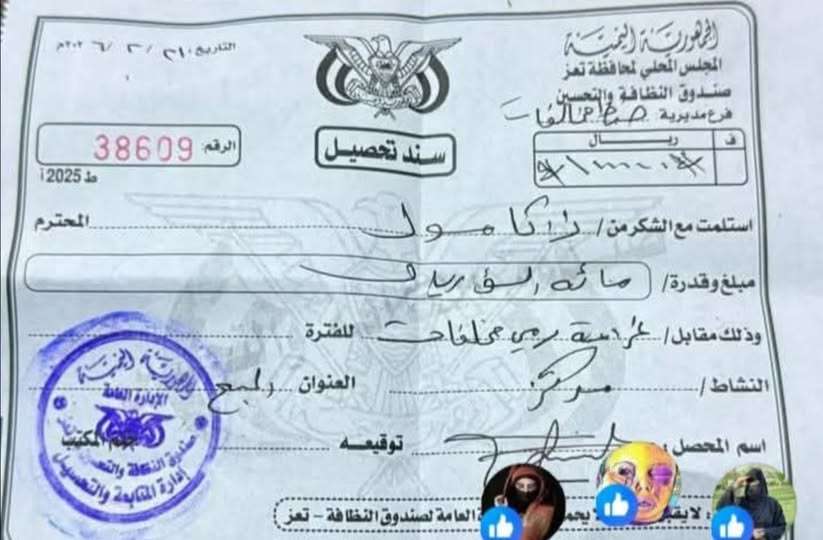 الجمهورية اليمنية
المجلس المحلي لمحافظة تعز
صندوق النظافة والتحسين
فرع مديرية
التاريخ:
سند تحصيل
الرقم: 38609
ط 2025 أ
ريال ف
استلمت مع الشكر من / المحترم
مبلغ وقدرة / مائه الف ريال
وذلك مقابل / غرامة رمي مخلفات للفترة
النشاط / مركز العنوان
اسم المحصل: توقيعه
الجمهورية اليمنية
الإدارة العامة
صندوق النظافة والتحسين
إدارة المتابعة والتحصيل
ختم المكتب
العامة لصندوق النظافة - تعز